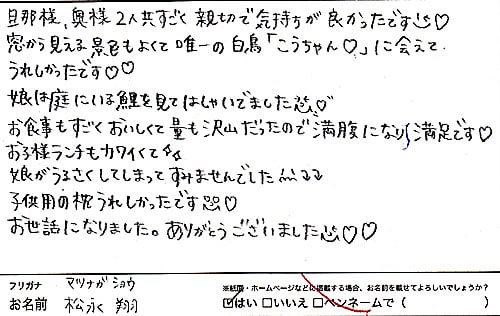 旦那様、奥様2人共すごく親切で気持ちが良かったです♡
窓から見える景色もよくて唯一の白鳥「こうちゃん♡」に会えて
うれしかったです♡♡
娘は庭にいる鯉を見てはしゃいでました♡
お食事もすごくおいしくて量も沢山だったので満腹になり満足です♡
お子様ランチもカワイくて
娘がうるさくしてしまってすみませんでした
子供用の枕うれしかったです♡
お世話になりました。ありがとうございました♡♡
フリガナ マツナガ ショウ
お名前 松永 翔
※紙面・ホームページなどに掲載する場合、お名前を載せてよろしいでしょうか?
☑はい □いいえ □ペンネームで ( )